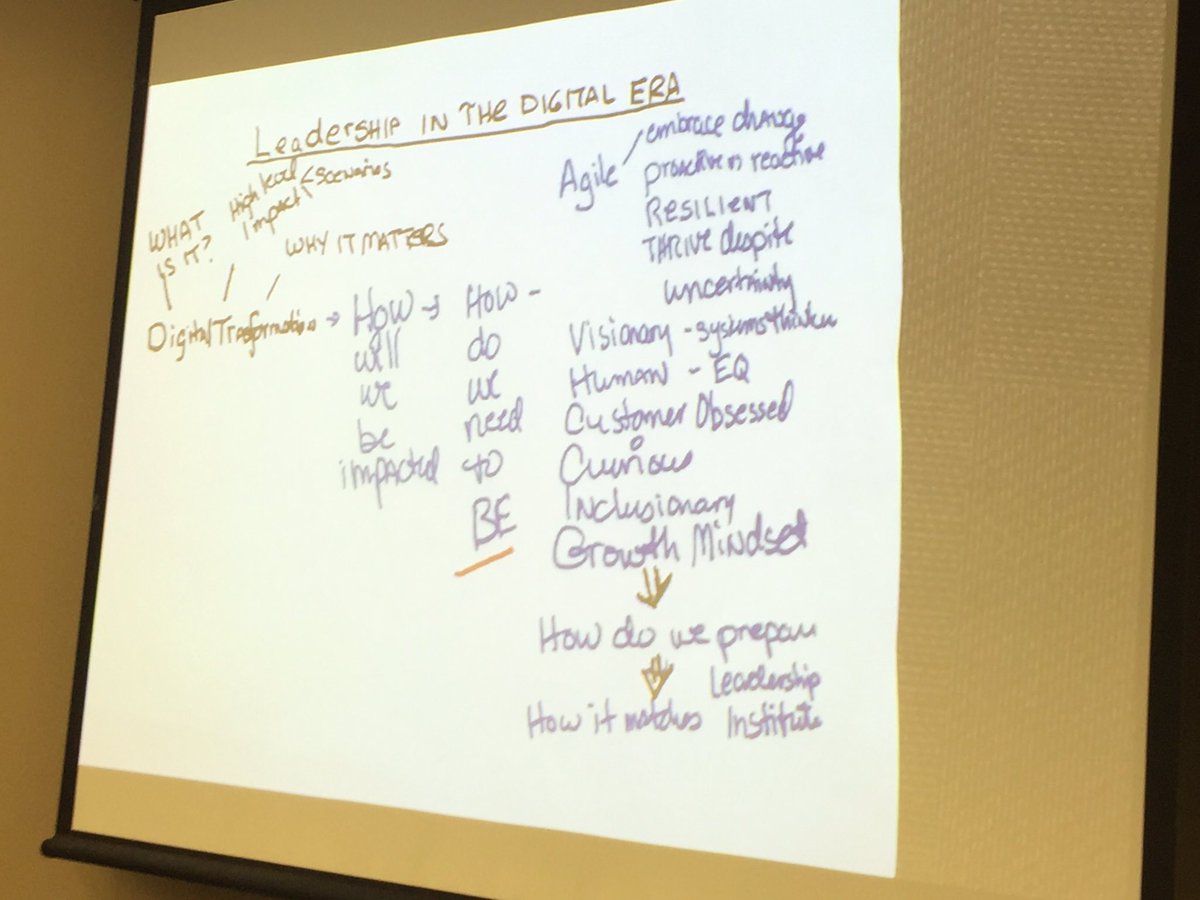 Leadership in the Digital Era
WHAT
IS IT?
High level
impact
scenarios
WHY IT MATTERS
Digital Trasformation → How → How -
will
we
be
impacted
do
we
need
to
BE
Agile
embrace change
proactive vs reactive
RESILIENT
THRIVE despite
uncertainty
Visionary - systems thinker
Human - EQ
Customer Obsessed
Curious
Inclusionary
Growth Mindset
How do we prepare
Leadership
How it matches Institute